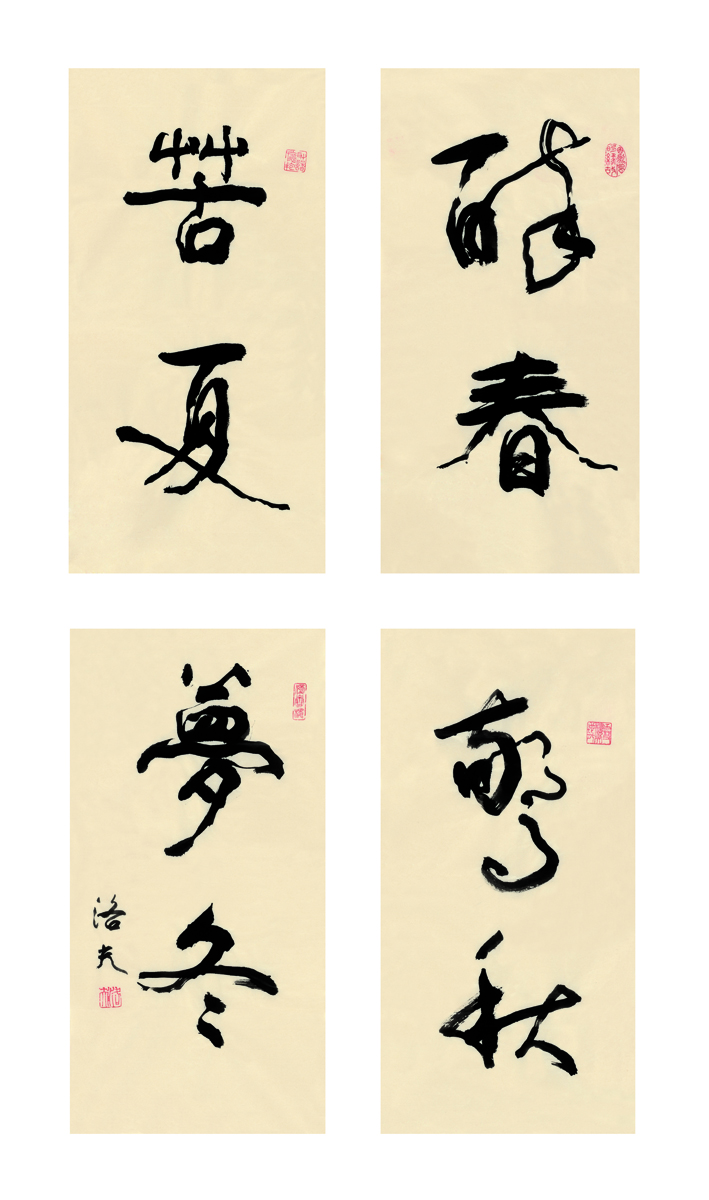 醉春
苦夏
驚秋
夢冬
洛夫